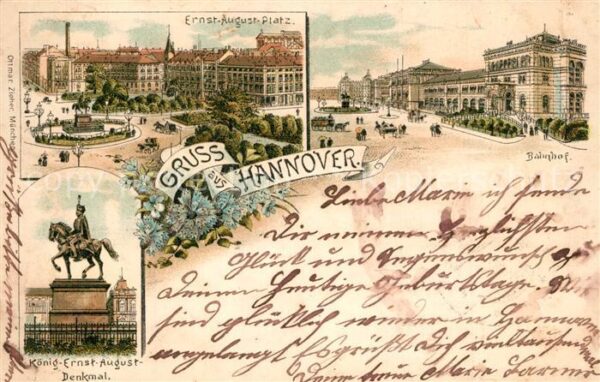 Ernst-August-Platz.
Ottmar Zieher, München
Bahnhof.
GRUSS
aus
HANNOVER.
König-Ernst-August-
Denkmal.
Liebe Marie ich sende
Dir meinen herzlichsten
Glück und Segenswunsch zu
Deinem heutigen Geburtstage.
sind glücklich wieder in Hannover
angelangt Es grüßt Dich vieltausendmal
Deine treue Marie